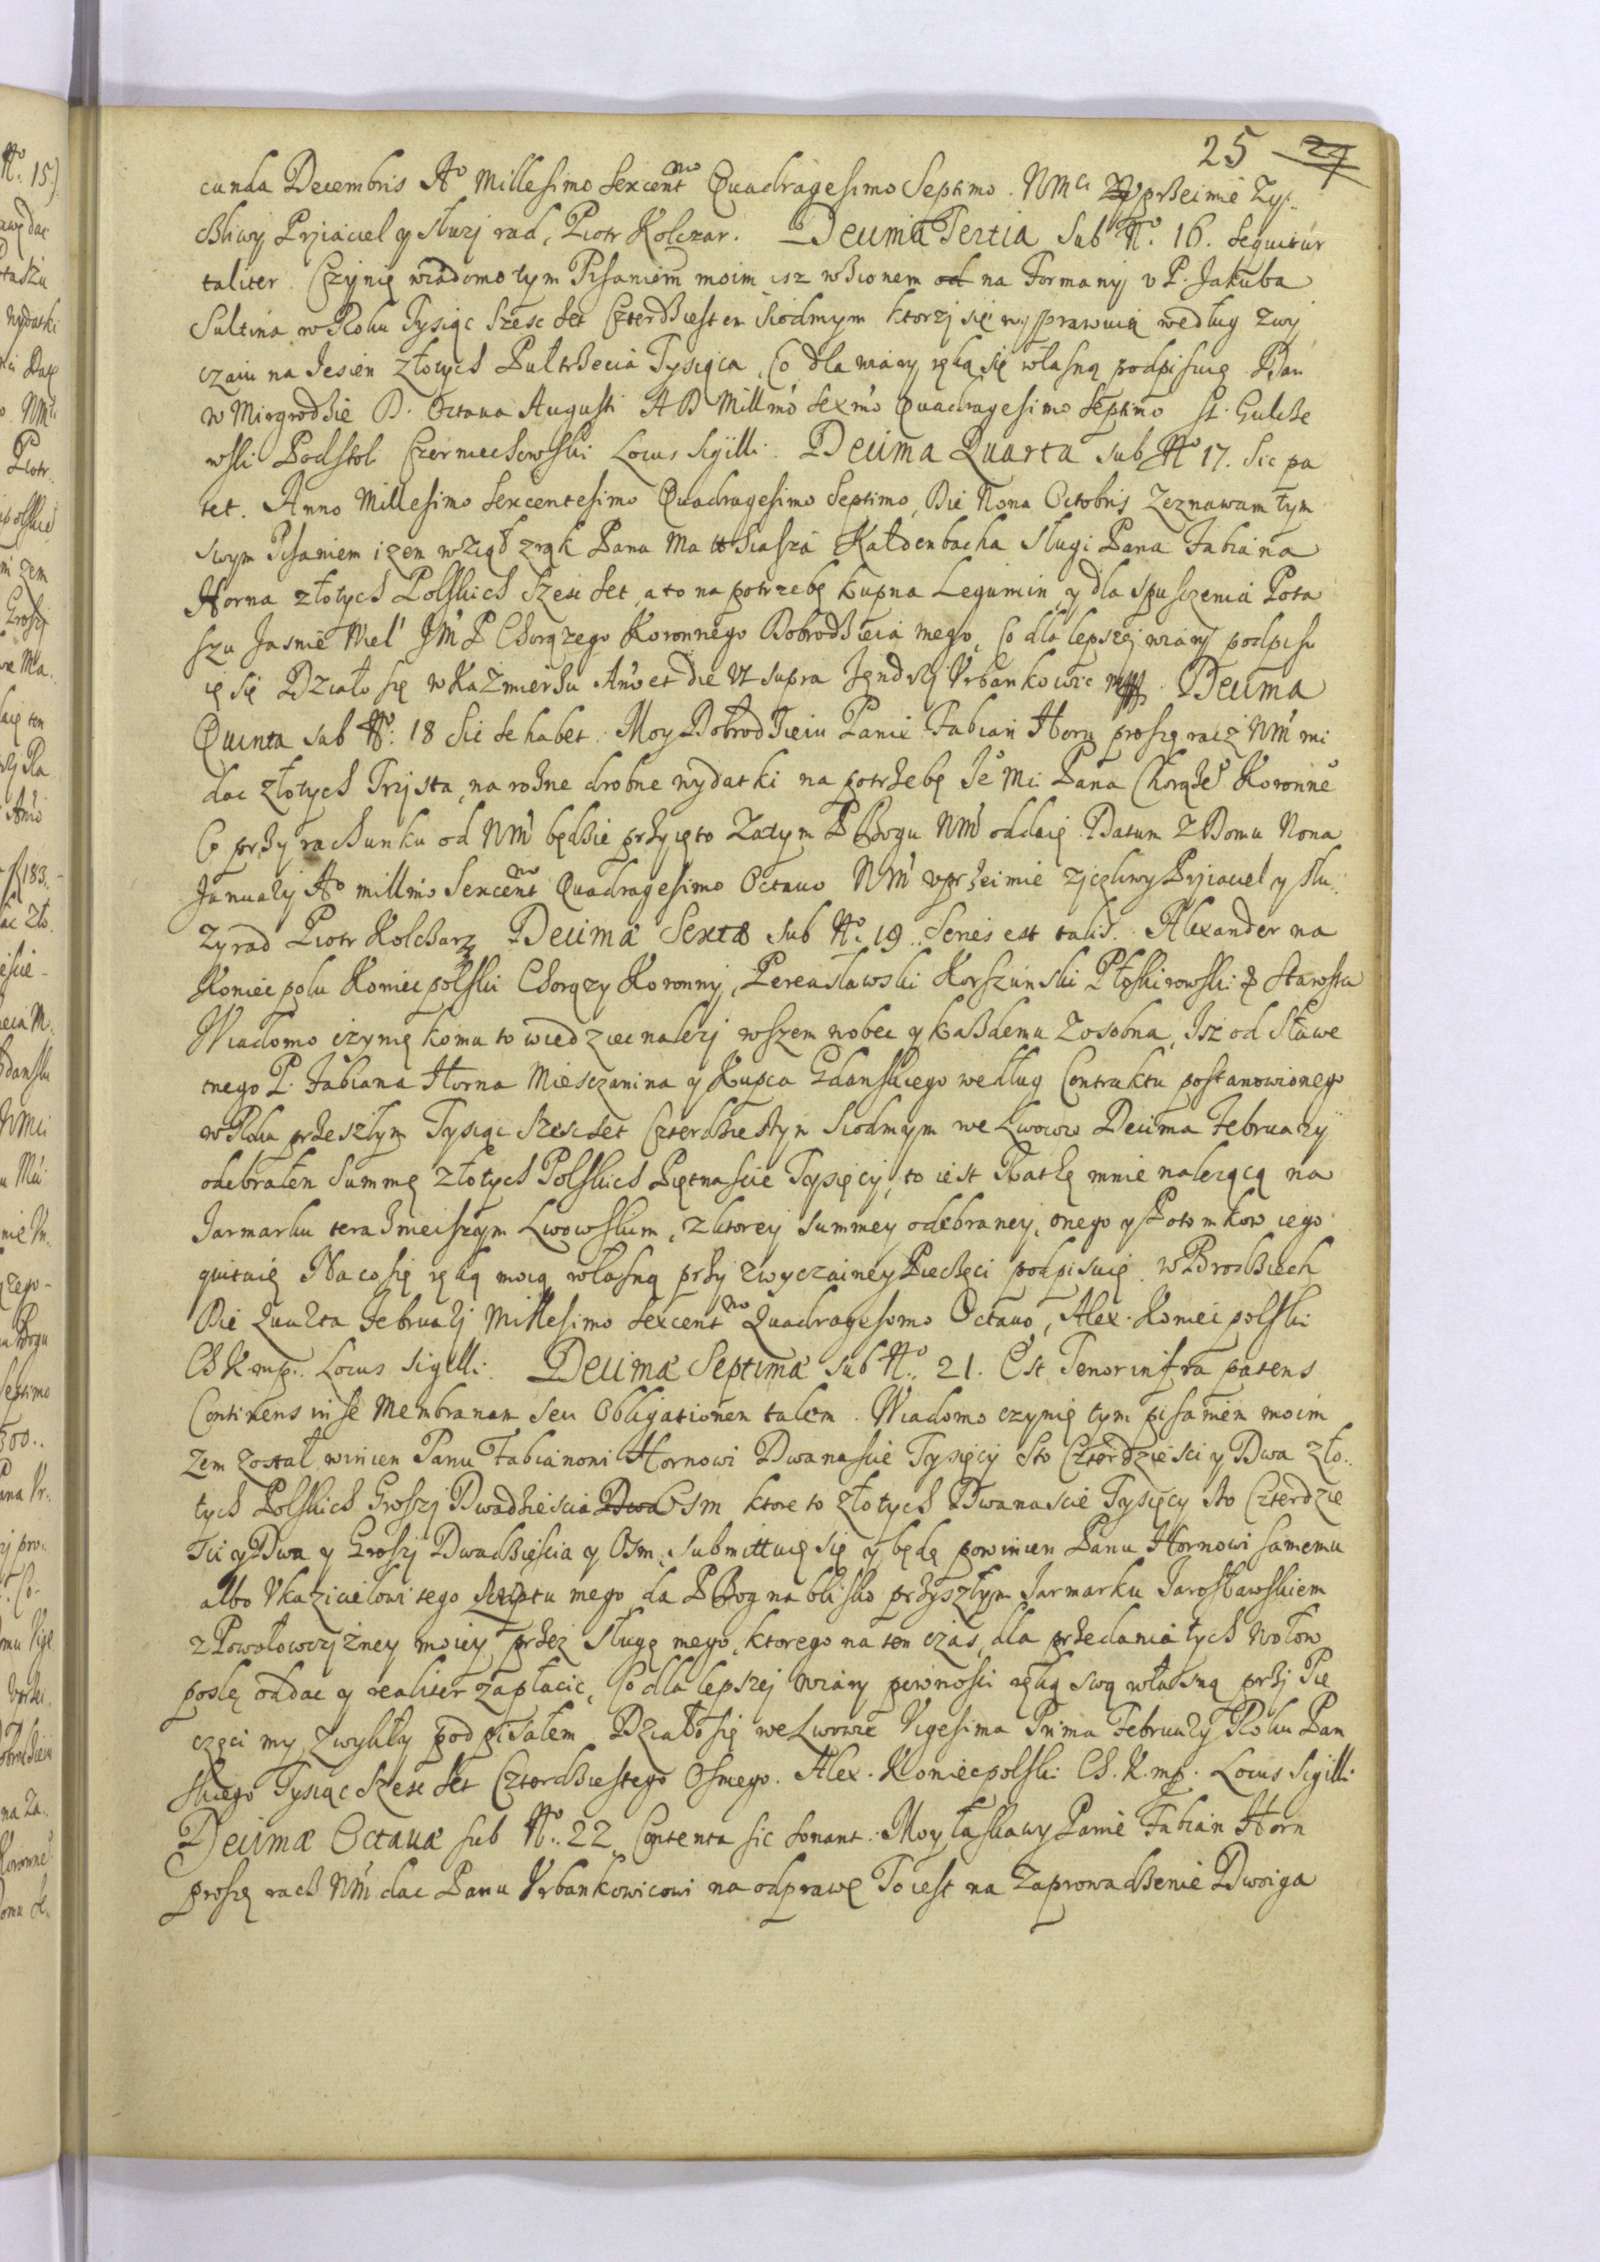 25 27
cunda Decembris Ao Millesimo Sexcentmo Quadragesimo Septimo. WMci vprzeimie Zy-
czliwy Przyiaciel y sluzy rad, Piotr Kolczar. Decima Tertia sub No. 16. sequitur
taliter. Czynię wiadomo tym Pisaniem moim isz wzionem od na Formanÿ v P. Jakuba
Sultina w Roku Tysiąc Szesc set Czterdziesten Siodmym ktorzj się wyprawuią według zwy
czaiu na Jesien złotych Pultrzecia Tysiąca, Co dla wiary ręką się własną podpisuię Dan
w Mirgrodzie D. Octaua Augusti A D Millmo Sexmo Quadragesimo Septimo St. Gulcze
wski Podstoli Czerniechowski Locus Sigilli. Decima Quarta sub No 17. sic pa
tet. Anno Millesimo Sexcentesimo Quadragesimo Septimo, Die Nona Octobris Zeznawam tym
swym Pisaniem izem wziął z rąk Pana Matthiasza Kaldenbacha Slugi Pana Fabiana
Horna złotych Polskich Szesc set, a to na potrzebę kupna Legumin, y dla spusczenia Pota
szu Jasnie Wiel JM P Chorązego Koronnego Dobrodzieia mego, Co dla lepszej wiary podpisu
ię się Działo się w Kazmierzu Anno et die Vt supra Jędrzÿ Vrbankowic mpp. Decima
Quinta sub No: 18 Sic se habet. Moy Dobrodzieiu Panie Fabian Horn proszę racz WM mi
dac złotych Trzysta, na rożne drobne wydatki na potrzebę Jeo Mci Pana Chorążeo Koronneo
Co przy rachunku od WM będzie przyięto Zatym P Bogu WM oddaię. Datum z Domu Nona
Januarij Ao millmo Sexcentmo Quadragesimo Octauo WM vprzeimie zyczliwy Przyiaciel y slu-
zy rad Piotr Kolczarz Decima Sexta sub No. 19. Series est talis. Alexander na
Koniecpolu Koniecpolski Chorązy Koronny, Pereasławski Korszunski Płoskirowski & Starosta
Wiadomo czynię komu to wiedziec nalezy wszem wobec y każdemu zosobna, Isz od Sławe
tnego P. Fabiana Horna Miesczanina y Kupca Gdanskiego według Contraktu postanowionego
w Roku przeszłym Tysiąc Szesc set Czterdziestym Siodmym we Lwowie Decima Februarij
odebrałen Summę złotych Polskich Piętnascie Tysięcy, to iest Ratę mnie nalezącą na
Jarmarku teraznieiszym Lwowskim, z ktorey summey odebraney, onego y Potomkow iego
quituię Na co się ręką moią własną przy zwyczainey Pieczęci podpisuię. w Brodziech
Die Quarta Februarij Millesimo Sexcentmo Quadragesimo Octauo, Alex. Koniecpolski
Ch K mp. Locus Sigilli. Decima Septima sub No. 21. Est Tenor infra patens
Continens in se Membranam seu Obligationem talem. Wiadomo czynię tym pisaniem moim
zem został winien Panu Fabianoni Hornowi Dwanascie Tysięcy Sto Czterdziesci y Dwa zło-
tych Polskich Groszy Dwadziescia Dwa Osm ktore to złotych Dwanascie Tysięcy sto Czterdzie
sci y Dwa y Groszy Dwadziescia y Osm, submittuię się y będę powinien Panu Hornowi samemu
albo Vkazicielowi tego Skriptu mego, da P Bog na blisko przyszłym Jarmarku Jarosławskiem
z Powołowczyzney moiey przez Sługę mego, ktorego na ten czas, dla przedania tych Wołow
poslę oddac y realiter zapłacic, Co dla lepszej wiary pewnosci ręką swą własną przy Pie
częci my zwykły podpisałem. Działo się we Lwowie Vigesima Prima Februarij Roku Pan
skiego Tysiąc Szesc set Czterdziestego Osmego. Alex. Koniecpolski Ch. K. mp. Locus Sigilli
Decima Octaua sub No. 22. Contenta sic sonant. Moy łaskawy Panie Fabian Horn
proszę racz WM dac Panu Vrbankowicowi na odprawę To iest na Zaprowadzenie Dwoiga